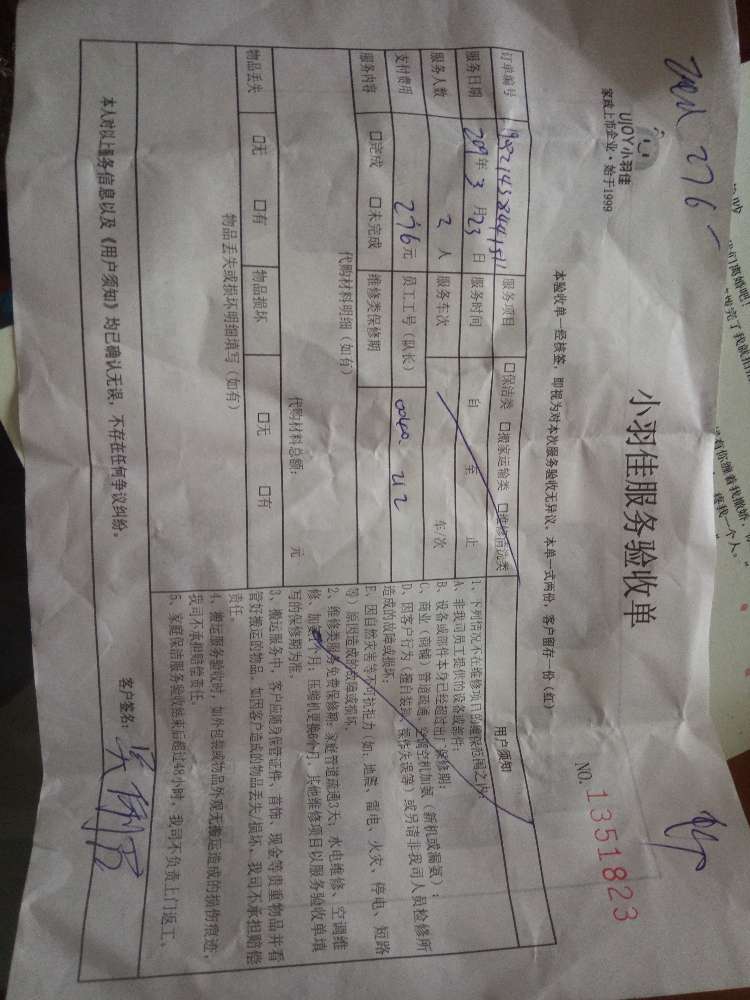 276
UJOY小羽佳
家政上市企业·始于1999
小羽佳服务验收单
NO. 1351823
本验收单一经核签，即视为对本次服务验收无异议。本单一式两份，客户留存一份（红）
订单编号 服务项目 □保洁类 □搬家运输类 □维修清洗类
服务日期 2019年3月23日 服务时间 自 至 止
服务人数 2人 服务车次 车/次
支付费用 276元 员工工号（队长）
服务内容 □完成 □未完成 维修类保修期
代购材料明细（如有）
代购材料总额： 元
物品丢失 □无 □有 物品损坏 □无 □有
物品丢失或损坏明细填写（如有）
用户须知
1、下列情况不在维修项目的维保范围之内：
A、非我司员工提供的设备或部件；
B、设备或部件本身已经超过出厂保修期；
C、商业（商铺）管道疏通、空调空积加氨（新机或漏氨）；
D、因客户行为（擅自装拆、操作失误等）或另请非我司人员检修所
造成的故障或损坏；
E、因自然灾害等不可抗拒力（如：地震、雷电、火灾、停电、短路
等）原因造成的故障或损坏。
2、维修类服务免费保修期：家庭管道疏通3天；水电维修、空调维
修、加 个月，压缩机更换6个月，其他维修项目以服务验收单填
写的保修期为准。
3、搬运服务中，客户应随身保管证件、首饰、现金等贵重物品并看
管好搬运的物品，如因客户造成的物品丢失/损坏，我司不承担赔偿
责任。
4、搬运服务验收时，如外包装或物品外观无搬运造成的损伤痕迹，
我司不承担赔偿责任。
5、家庭保洁服务验收结束后超过48小时，我司不负责上门返工。
本人对以上服务信息以及《用户须知》均已确认无误，不存在任何争议纠纷。
客户签名：